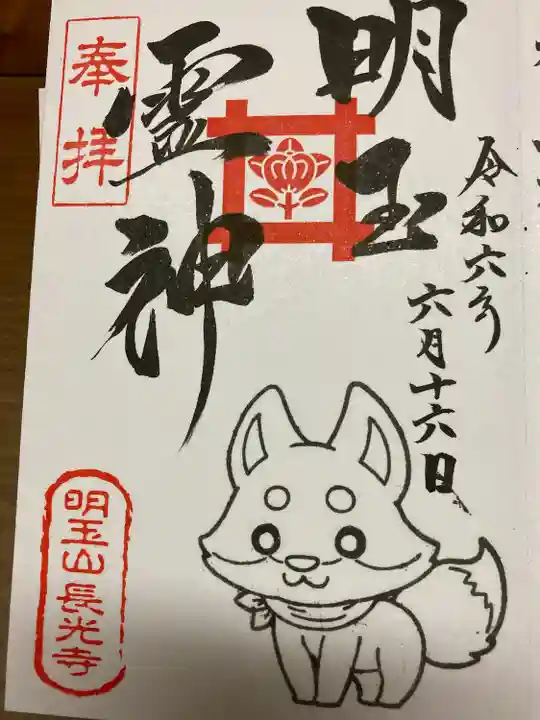 奉拝
明玉
霊神
令和六年
六月十六日
明玉山長光寺